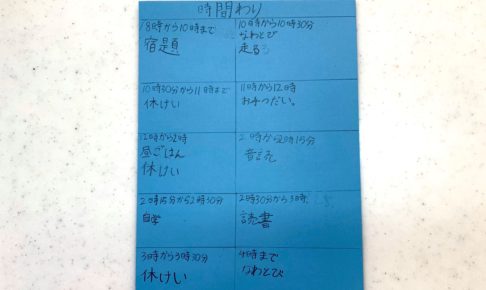 時間わり
8時から10時まで
宿題
10時から10時30分
なわとび
走る
10時30分から11時まで
休けい
11時から12時
お手つだい。
12時から2時
昼ごはん
休けい
2時から2時15分
音読
2時15分から2時30分
自学
2時30分から3時
読書
3時から3時30分
休けい
4時まで
なわとび